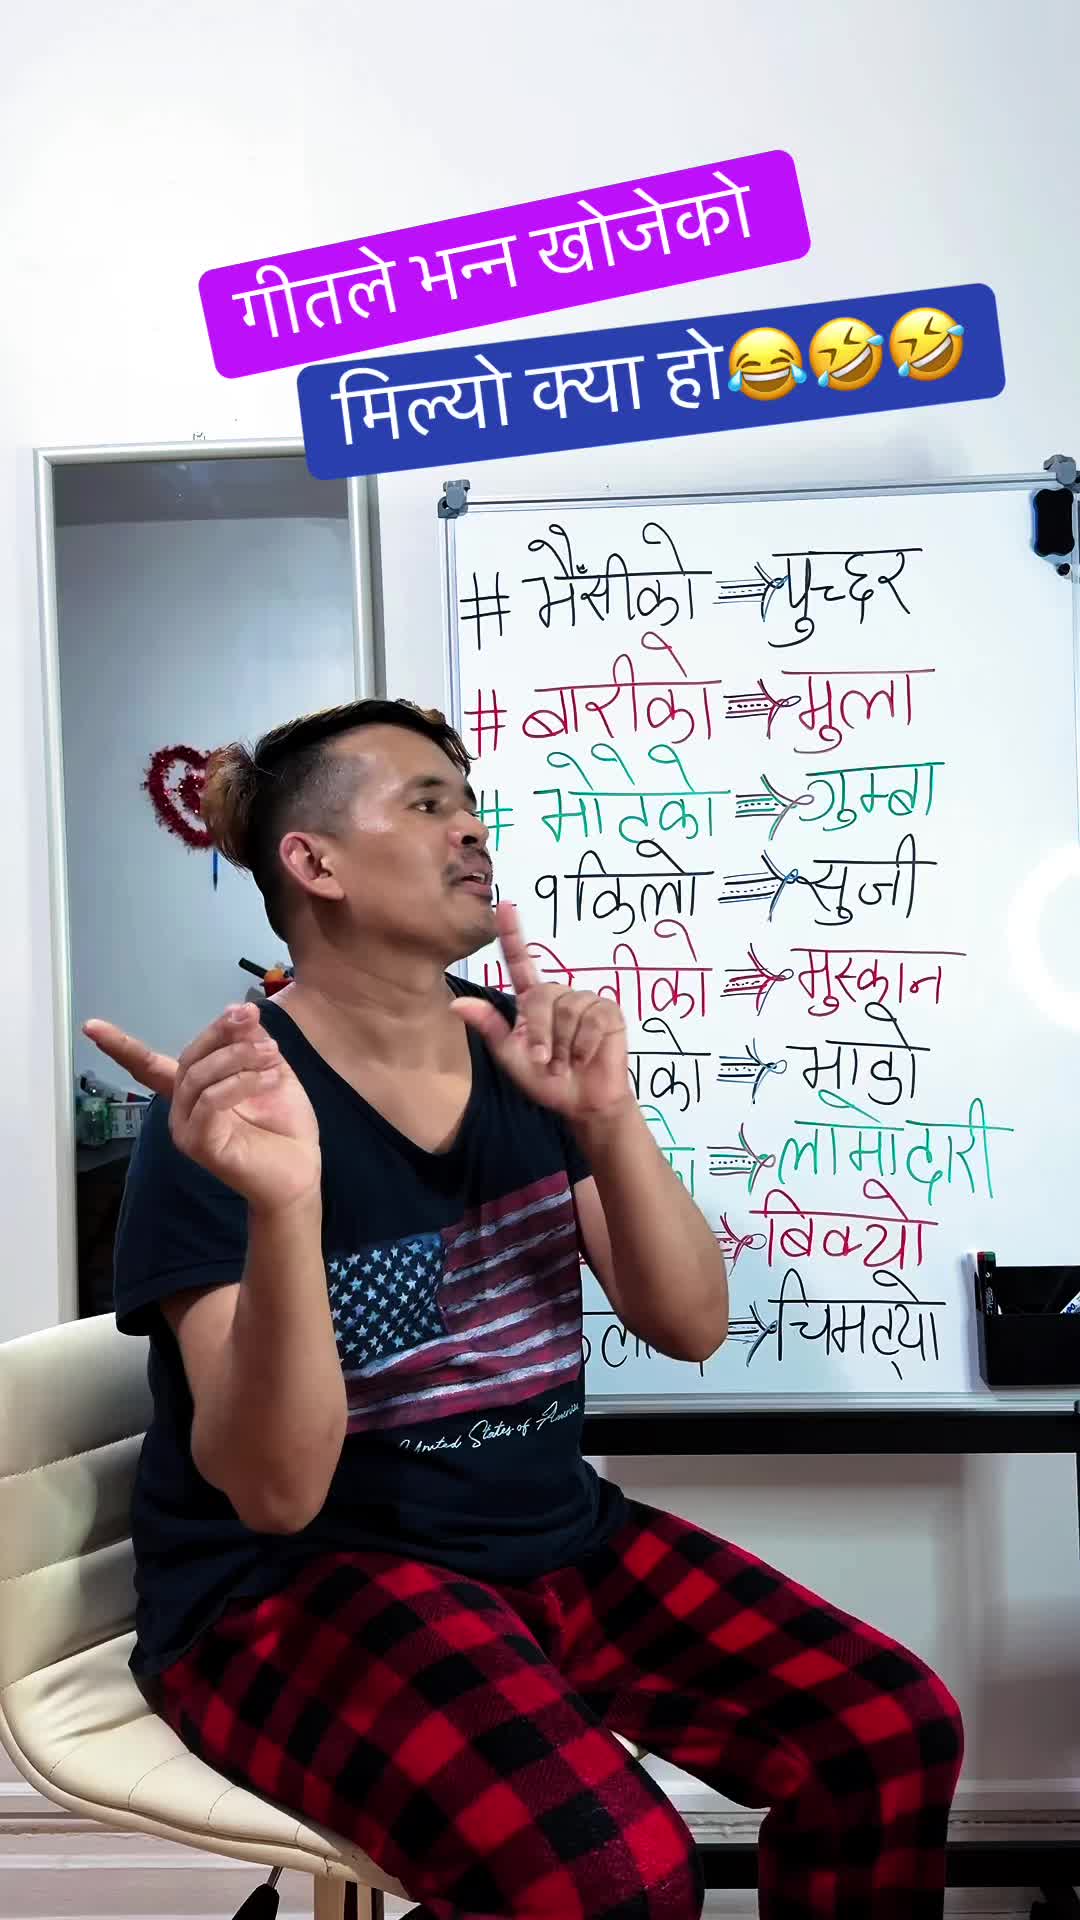 गीतले भन्न खोजेको
मिल्यो क्या हो😂🤣🤣
# भैँसीको ⇒ पुच्छर
# बारीको ⇒ मुला
# मोटेको ⇒ गुम्बा
१ किलो ⇒ सुजी
⇒ मुस्कान
⇒ भाडो
⇒ लामोदारी
⇒ बिक्यो
⇒ चिमट्यो
United States of America